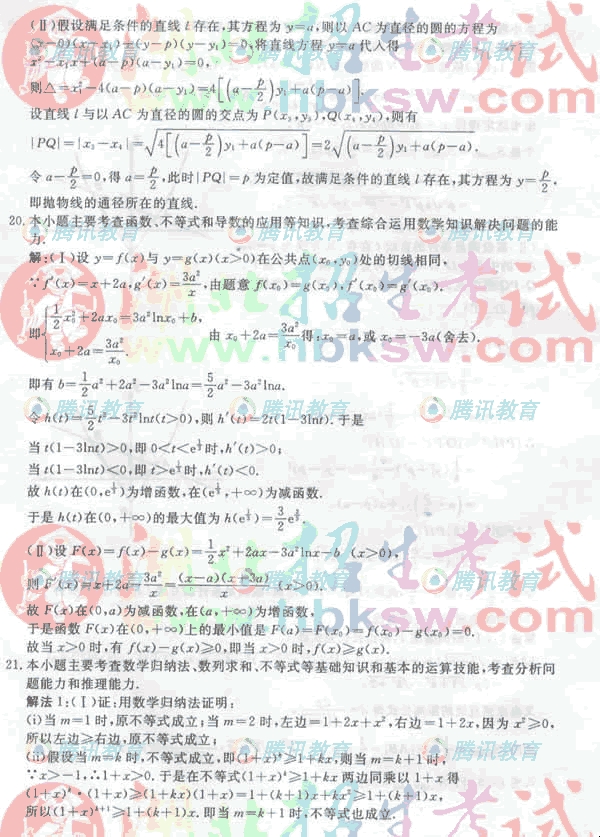 (Ⅱ)假设满足条件的直线 l 存在,其方程为 y=a,则以 AC 为直径的圆的方程为
(x-0)(x-x₁)+(y-p)(y-y₁)=0,将直线方程 y=a 代入得
x²-x₁x+(a-p)(a-y₁)=0,
则△=x₁²-4(a-p)(a-y₁)=4[(a-p/2)y₁+a(p-a)].
设直线 l 与以 AC 为直径的圆的交点为 P(x₃,y₃),Q(x₄,y₄),则有
|PQ|=|x₃-x₄|=√(4[(a-p/2)y₁+a(p-a)])=2√((a-p/2)y₁+a(p-a)).
令 a-p/2=0,得 a=p/2,此时|PQ|=p 为定值,故满足条件的直线 l 存在,其方程为 y=p/2,
即抛物线的通径所在的直线.
20.本小题主要考查函数、不等式和导数的应用等知识,考查综合运用数学知识解决问题的能
力.
解:(Ⅰ)设 y=f(x)与 y=g(x)(x>0)在公共点(x₀,y₀)处的切线相同,
∵f′(x)=x+2a,g′(x)=3a²/x,由题意 f(x₀)=g(x₀),f′(x₀)=g′(x₀).
即{1/2x₀²+2ax₀=3a²lnx₀+b, x₀+2a=3a²/x₀. 由 x₀+2a=3a²/x₀得:x₀=a,或 x₀=-3a(舍去).
即有 b=1/2a²+2a²-3a²lna=5/2a²-3a²lna.
令 h(t)=5/2t²-3t²lnt(t>0),则 h′(t)=2t(1-3lnt).于是
当 t(1-3lnt)>0,即 0<t<e^(1/3)时,h′(t)>0;
当 t(1-3lnt)<0,即 t>e^(1/3)时,h′(t)<0.
故 h(t)在(0,e^(1/3))为增函数,在(e^(1/3),+∞)为减函数.
于是 h(t)在(0,+∞)的最大值为 h(e^(1/3))=3/2e^(2/3).
(Ⅱ)设 F(x)=f(x)-g(x)=1/2x²+2ax-3a²lnx-b (x>0),
则 F′(x)=x+2a-3a²/x=(x-a)(x+3a)/x (x>0).
故 F(x)在(0,a)为减函数,在(a,+∞)为增函数,
于是函数 F(x)在(0,+∞)上的最小值是 F(a)=F(x₀)=f(x₀)-g(x₀)=0.
故当 x>0 时,有 f(x)-g(x)≥0,即当 x>0 时,f(x)≥g(x).
21.本小题主要考查数学归纳法、数列求和、不等式等基础知识和基本的运算技能,考查分析问
题能力和推理能力.
解法 1:(Ⅰ)证:用数学归纳法证明:
(ⅰ)当 m=1 时,原不等式成立;当 m=2 时,左边=1+2x+x²,右边=1+2x,因为 x²≥0,
所以左边≥右边,原不等式成立;
(ⅱ)假设当 m=k 时,不等式成立,即(1+x)ᵏ≥1+kx,则当 m=k+1 时,
∵x>-1,∴1+x>0.于是在不等式(1+x)ᵏ≥1+kx 两边同乘以 1+x 得
(1+x)ᵏ·(1+x)≥(1+kx)(1+x)=1+(k+1)x+kx²≥1+(k+1)x,
所以(1+x)ᵏ⁺¹≥1+(k+1)x.即当 m=k+1 时,不等式也成立.
湖北招生考试
www.hbksw.com
腾讯教育